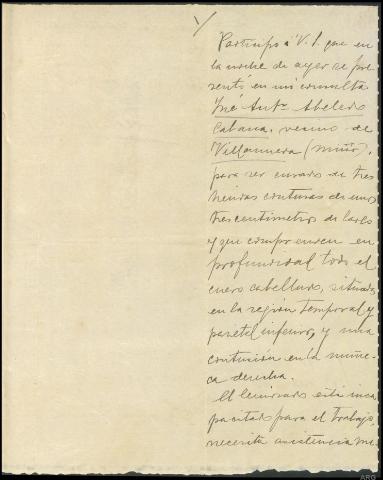 Participo á V. I. que en
la noche de ayer se pre
sentó en mi consulta
José Antº Abeledo
Cabana, vecino de
Villanueva (Miño),
para ser curado de tres
heridas contusas de unos
tres centimetros de largo
y que comprenden en
profundidad todo el
cuero cabelludo, situadas
en la región temporal y
parietal inferior, y una
contusión en la muñe-
ca derecha.
El lesionado está inca
pacitado para el trabajo,
necesita asistencia me
ARG